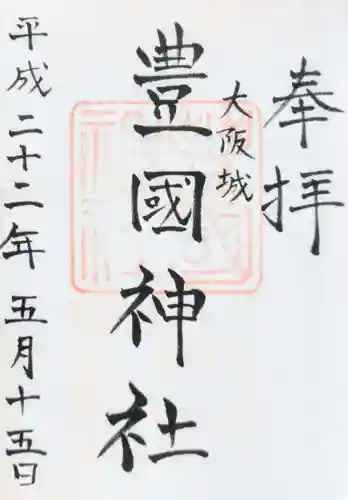 奉拝
大阪城
豊國神社
平成二十二年五月十五日